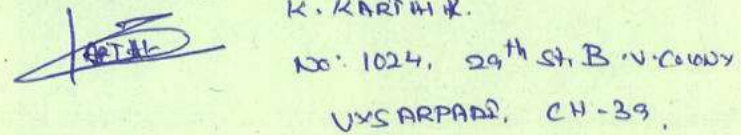 K. KARTHIK.
No: 1024, 29th St, B.V. COLONY
VYSARPADI, CH-39.